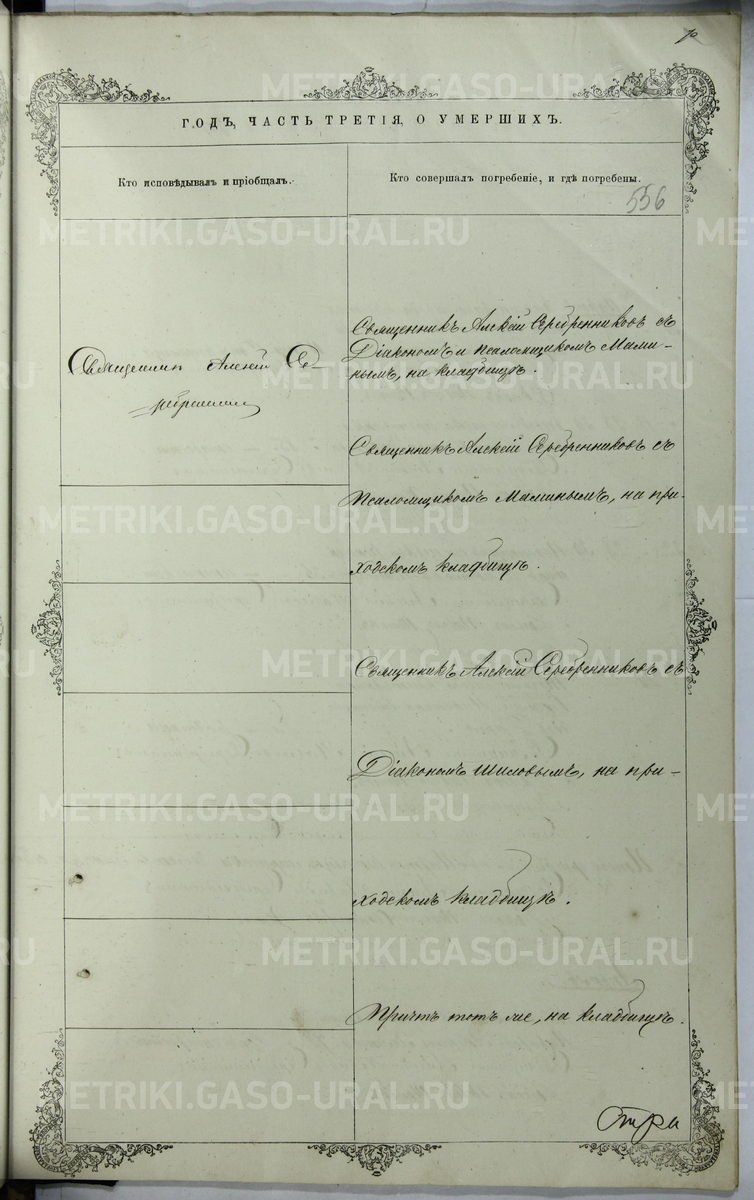 ГОДЪ, ЧАСТЬ ТРЕТІЯ, О УМЕРШИХЪ.
Кто исповѣдывалъ и пріобщалъ.
Кто совершалъ погребеніе, и гдѣ погребены.
556
Священникъ Алексій Се-
ребрениковъ
Священникъ Алексій Серебренниковъ съ
Діакономъ и псаломщикомъ Мами-
нымъ, на кладбищѣ.
Священникъ Алексій Серебренниковъ съ
псаломщикомъ Маминымъ, на при-
ходскомъ кладбищѣ.
Священникъ Алексій Серебренниковъ съ
Діакономъ Шиловымъ, на при-
ходскомъ кладбищѣ.
Причтъ тотъ же, на кладбищѣ.
METRIKI.GASO-URAL.RU